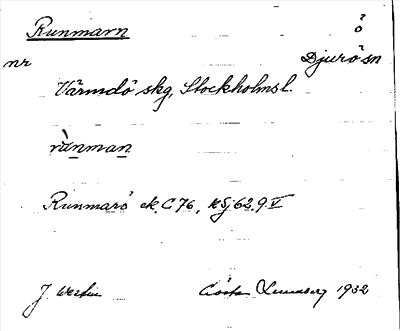 Runmarn ö
nr Djurö sn
Värmdö skg, Stockholms l.
rùnman
Runmarö ek. C 76, KSj 62.9 V
J. Gösta Lundberg 1932